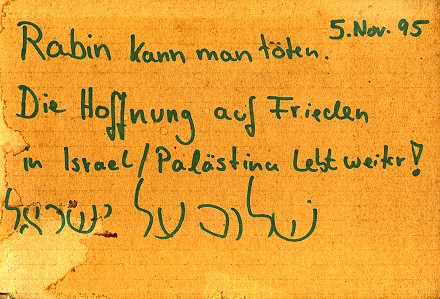 5. Nov. 95
Rabin kann man töten.
Die Hoffnung auf Frieden
in Israel/Palästina lebt weiter!
שלום על ישראל